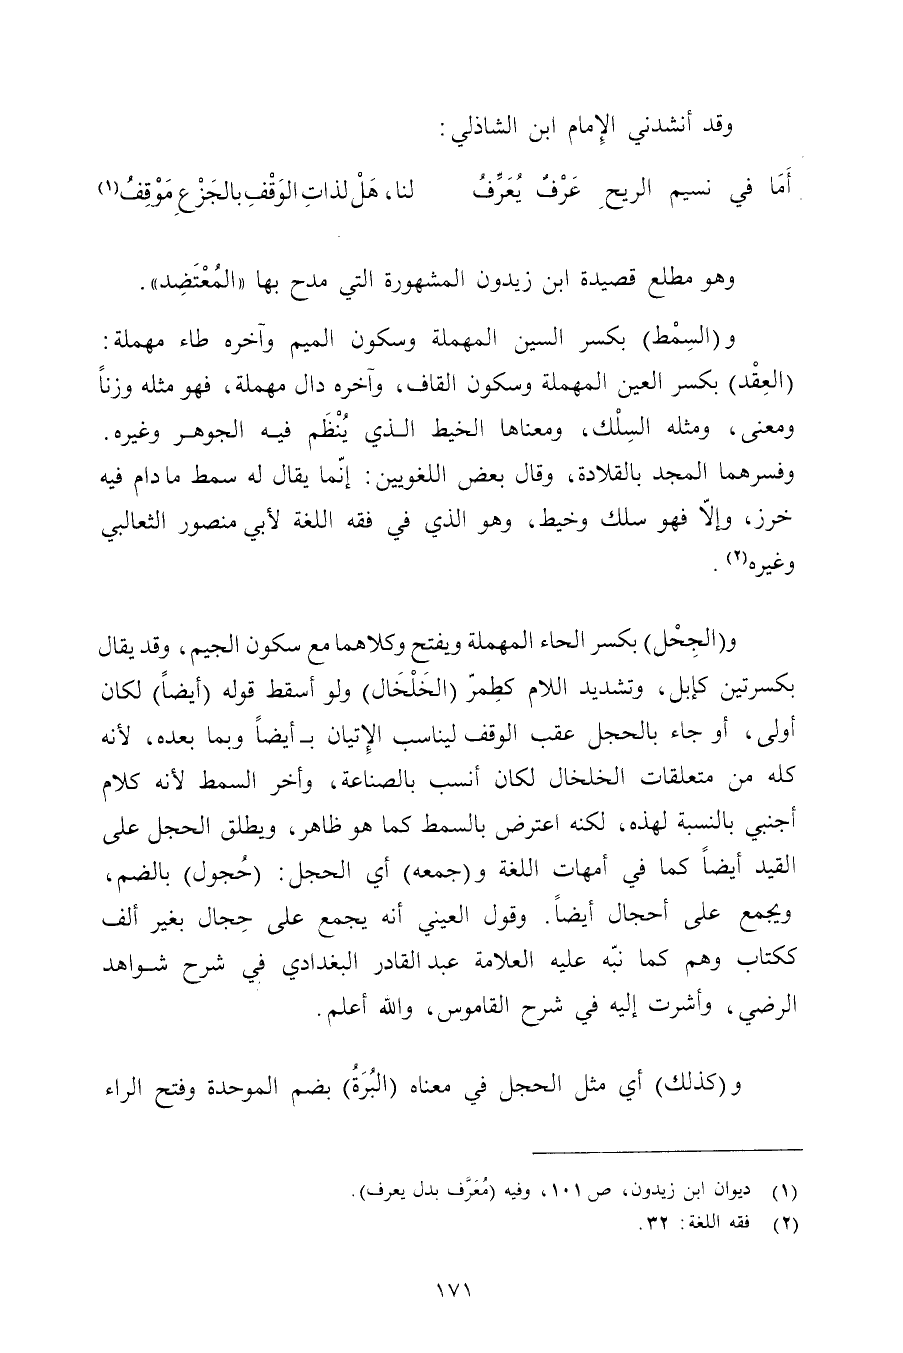 وقد أنشدني الإمام ابن الشاذلي :
أَمَا في نسيم الريح عَرْفٌ يُعَرِّفُ لنا، هَلْ لذاتِ الوَقْفِ بالجَزْعِ مَوْقِفُ(١)
وهو مطلع قصيدة ابن زيدون المشهورة التي مدح بها «المُعْتَضِد» .
و (السِمْط) بكسر السين المهملة وسكون الميم وآخره طاء مهملة :
(العِقْد) بكسر العين المهملة وسكون القاف، وآخره دال مهملة، فهو مثله وزناً
ومعنى، ومثله السِلْك، ومعناها الخيط الذي يُنْظَم فيه الجوهر وغيره .
وفسرهما المجد بالقلادة، وقال بعض اللغويين : إنّما يقال له سمط ما دام فيه
خرز، وإلاّ فهو سلك وخيط، وهو الذي في فقه اللغة لأبي منصور الثعالبي
وغيره(٢) .
و(الحِجْل) بكسر الحاء المهملة ويفتح وكلاهما مع سكون الجيم، وقد يقال
بكسرتين كإبل، وتشديد اللام كطِمرّ (الخَلْخَال) ولو أسقط قوله (أيضاً) لكان
أولى، أو جاء بالحجل عقب الوقف ليناسب الإتيان بـ أيضاً وبما بعده، لأنه
كله من متعلقات الخلخال لكان أنسب بالصناعة، وأخر السمط لأنه كلام
أجنبي بالنسبة لهذه، لكنه اعترض بالسمط كما هو ظاهر، ويطلق الحجل على
القيد أيضاً كما في أمهات اللغة و (جمعه) أي الحجل : (حُجول) بالضم،
ويجمع على أحجال أيضاً. وقول العيني أنه يجمع على حِجال بغير ألف
ككتاب وهم كما نبّه عليه العلامة عبد القادر البغدادي في شرح شواهد
الرضي، وأشرت إليه في شرح القاموس، والله أعلم .
و (كذلك) أي مثل الحجل في معناه (البُرَةُ) بضم الموحدة وفتح الراء
(١) ديوان ابن زيدون، ص ١٠١، وفيه (مُعَرَّف بدل يعرف) .
(٢) فقه اللغة : ٣٢ .
١٧١